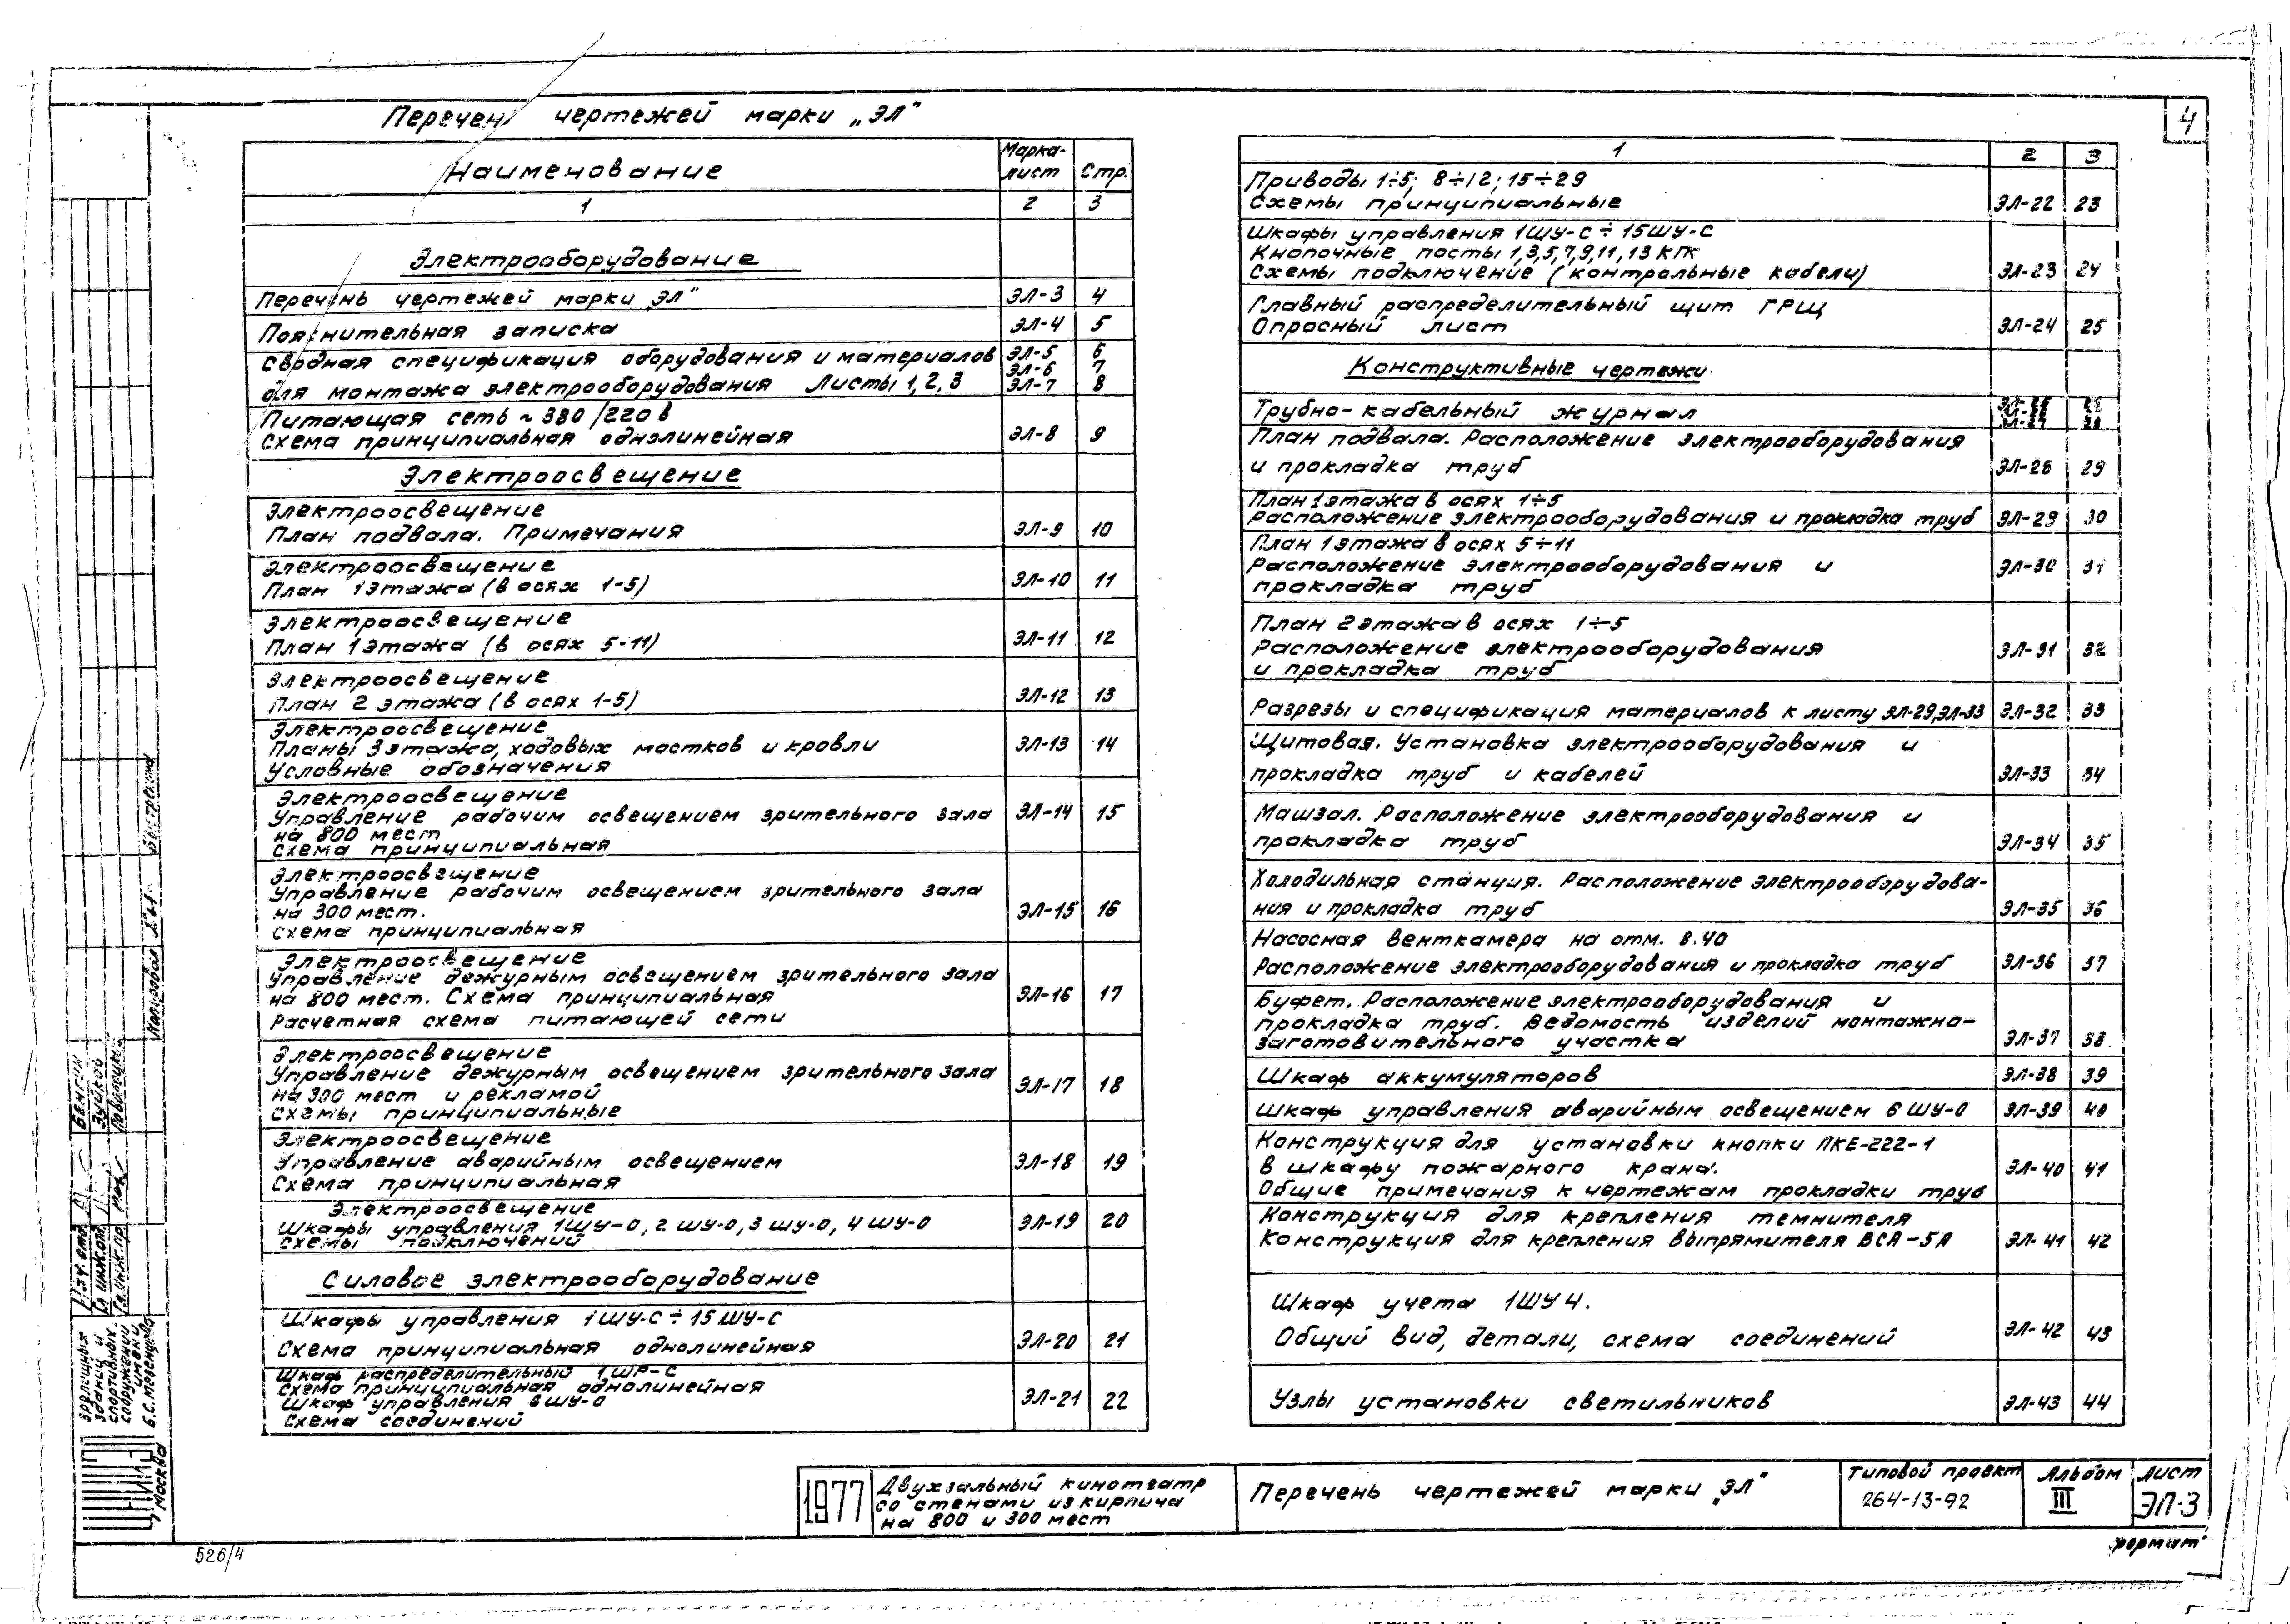 Перечень чертежей марки „ЭЛ"
4
Наименование
Марка-
лист
Стр.
1 2 3
Электрооборудование
Перечень чертежей марки „ЭЛ" ЭЛ-3 4
Пояснительная записка ЭЛ-4 5
Сводная спецификация оборудования и материалов ЭЛ-5 6
ЭЛ-6 7
для монтажа электрооборудования Листы 1, 2, 3 ЭЛ-7 8
Питающая сеть ~ 380/220 в
Схема принципиальная однолинейная ЭЛ-8 9
Электроосвещение
Электроосвещение
План подвала. Примечания ЭЛ-9 10
Электроосвещение
План 1 этажа (в осях 1-5) ЭЛ-10 11
Электроосвещение
План 1 этажа (в осях 5-11) ЭЛ-11 12
Электроосвещение
План 2 этажа (в осях 1-5) ЭЛ-12 13
Электроосвещение
Планы 3 этажа, ходовых мостков и кровли ЭЛ-13 14
Условные обозначения
Электроосвещение
Управление рабочим освещением зрительного зала ЭЛ-14 15
на 800 мест
схема принципиальная
Электроосвещение
Управление рабочим освещением зрительного зала
на 300 мест. ЭЛ-15 16
схема принципиальная
Электроосвещение
Управление дежурным освещением зрительного зала
на 800 мест. Схема принципиальная ЭЛ-16 17
Расчетная схема питающей сети
Электроосвещение
Управление дежурным освещением зрительного зала
на 300 мест и рекламой ЭЛ-17 18
схемы принципиальные
Электроосвещение
Управление аварийным освещением ЭЛ-18 19
Схема принципиальная
Электроосвещение
Шкафы управления 1ШУ-О, 2 ШУ-О, 3 ШУ-О, 4 ШУ-О ЭЛ-19 20
схемы подключений
Силовое электрооборудование
Шкафы управления 1 ШУ-С ÷ 15 ШУ-С
Схема принципиальная однолинейная ЭЛ-20 21
Шкаф распределительный 1 ШР-С
схема принципиальная однолинейная
Шкаф управления 6 ШУ-О ЭЛ-21 22
Схема соединений
1 2 3
Приводы 1÷5; 8÷12; 15÷29
Схемы принципиальные ЭЛ-22 23
Шкафы управления 1ШУ-С ÷ 15ШУ-С
Кнопочные посты 1,3,5,7,9,11,13 КПК
Схемы подключение (контрольные кабели) ЭЛ-23 24
Главный распределительный щит ГРЩ
Опросный лист ЭЛ-24 25
Конструктивные чертежи
Трубно-кабельный журнал
План подвала. Расположение электрооборудования
и прокладка труб ЭЛ-28 29
План 1 этажа в осях 1÷5
Расположение электрооборудования и прокладка труб ЭЛ-29 30
План 1 этажа в осях 5÷11
Расположение электрооборудования и ЭЛ-30 31
прокладка труб
План 2 этажа в осях 1÷5
Расположение электрооборудования ЭЛ-31 32
и прокладка труб
Разрезы и спецификация материалов к листу ЭЛ-29, ЭЛ-33 ЭЛ-32 33
Щитовая. Установка электрооборудования и
прокладка труб и кабелей ЭЛ-33 34
Машзал. Расположение электрооборудования и
прокладка труб ЭЛ-34 35
Холодильная станция. Расположение электрооборудова-
ния и прокладка труб ЭЛ-35 36
Насосная венткамера на отм. 8.40
Расположение электрооборудования и прокладка труб ЭЛ-36 37
Буфет. Расположение электрооборудования и
прокладка труб. Ведомость изделий монтажно-
заготовительного участка ЭЛ-37 38
Шкаф аккумуляторов ЭЛ-38 39
Шкаф управления аварийным освещением 6 ШУ-О ЭЛ-39 40
Конструкция для установки кнопки ПКЕ-222-1
в шкафу пожарного крана. ЭЛ-40 41
Общие примечания к чертежам прокладки труб
Конструкция для крепления темнителя
Конструкция для крепления выпрямителя ВСА-5А ЭЛ-41 42
Шкаф учета 1ШУ4.
Общий вид, детали, схема соединений ЭЛ-42 43
Узлы установки светильников ЭЛ-43 44
Копировал
Бенгин
Зуйков
Нач. отд.
Гл. инж. отд.
Гл. инж. пр.
зрелищных
зданий и
спортивных
сооружений
имени
Б.С. Мезенцева
Москва
1977
Двухзальный кинотеатр
со стенами из кирпича
на 800 и 300 мест
Перечень чертежей марки „ЭЛ"
Типовой проект
264-13-92
Альбом
III
Лист
ЭЛ-3
526/4
формат